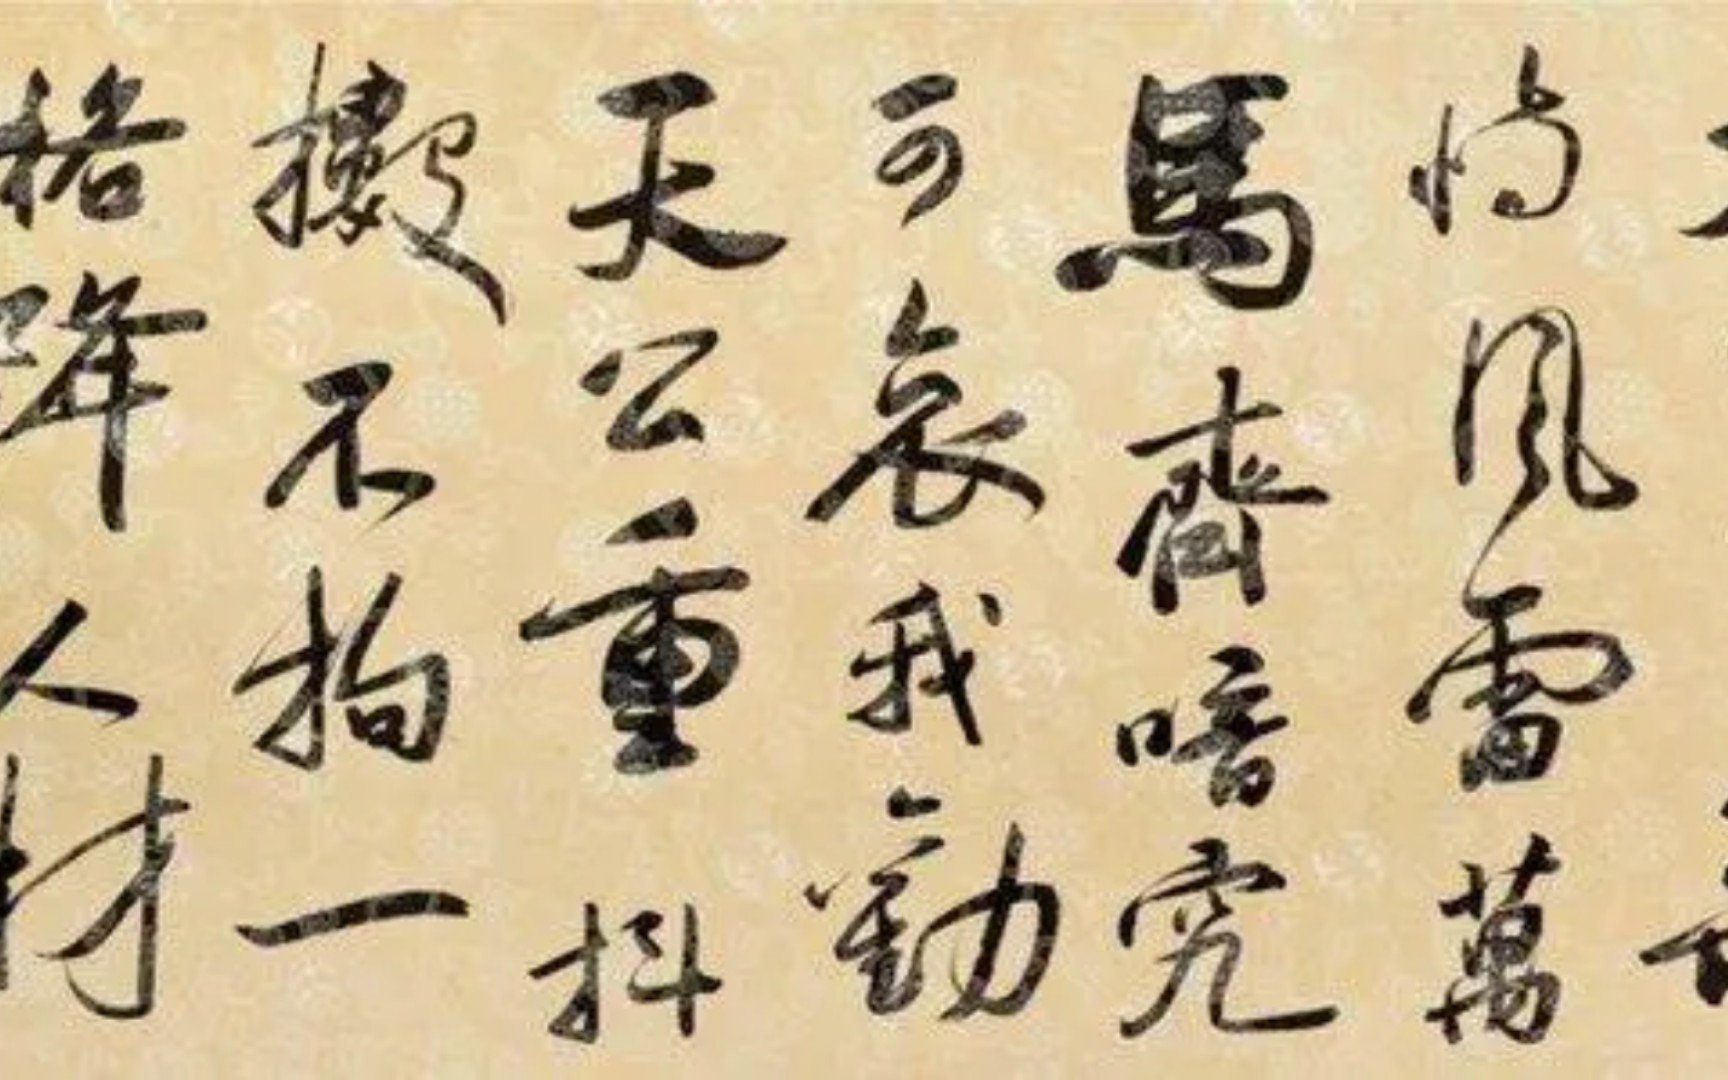 恃風雷萬
馬齊喑究
可哀我勸
天公重抖
擻不拘一
格降人材